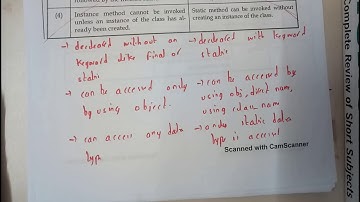 followed by the
(4) Instance method cannot be invoked
unless an instance of the class has al-
ready been created.
Static method can be invoked without
creating an instance of the class.
→ declared without on
keyword like final or
static
→ declared with keyword
static
→ can be accessed only
by using object.
→ can be accessed by
using obj, direct name,
using class name
→ can access any data
type
→ only static data
type is accessed
Scanned with CamScanner
Complete Review of Short Subjects